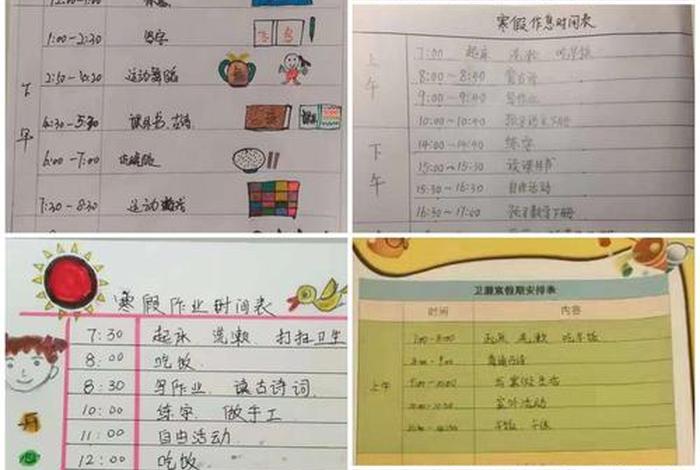 下午
1:00-2:30 练字
2:50-4:20 运动舞蹈
4:30-5:30 课外书、古诗
6:00-7:00 吃晚饭
7:30-8:30 运动游戏
寒假作息时间表
上午
7:00 起床 洗漱 吃早饭
8:00~8:40 背古诗
9:00~9:40 写作业
10:00~10:40
下午
14:00~14:40 练字
15:00~15:30 读课外书
15:30~16:30 自由活动
16:30~17:00 预习数学下册
寒假作业时间表
7:30 起床 洗漱 打扫卫生
8:00 吃饭
8:30 写作业、读古诗词
10:00 练字、做手工
11:00 自由活动
12:00 吃饭
寒假期安排表
时间 内容
上午
7:00-8:00 起床 洗漱 吃早饭
8:00-9:00 诵读古诗
9:00-10:00 写寒假生活
室外活动
午饭、午休